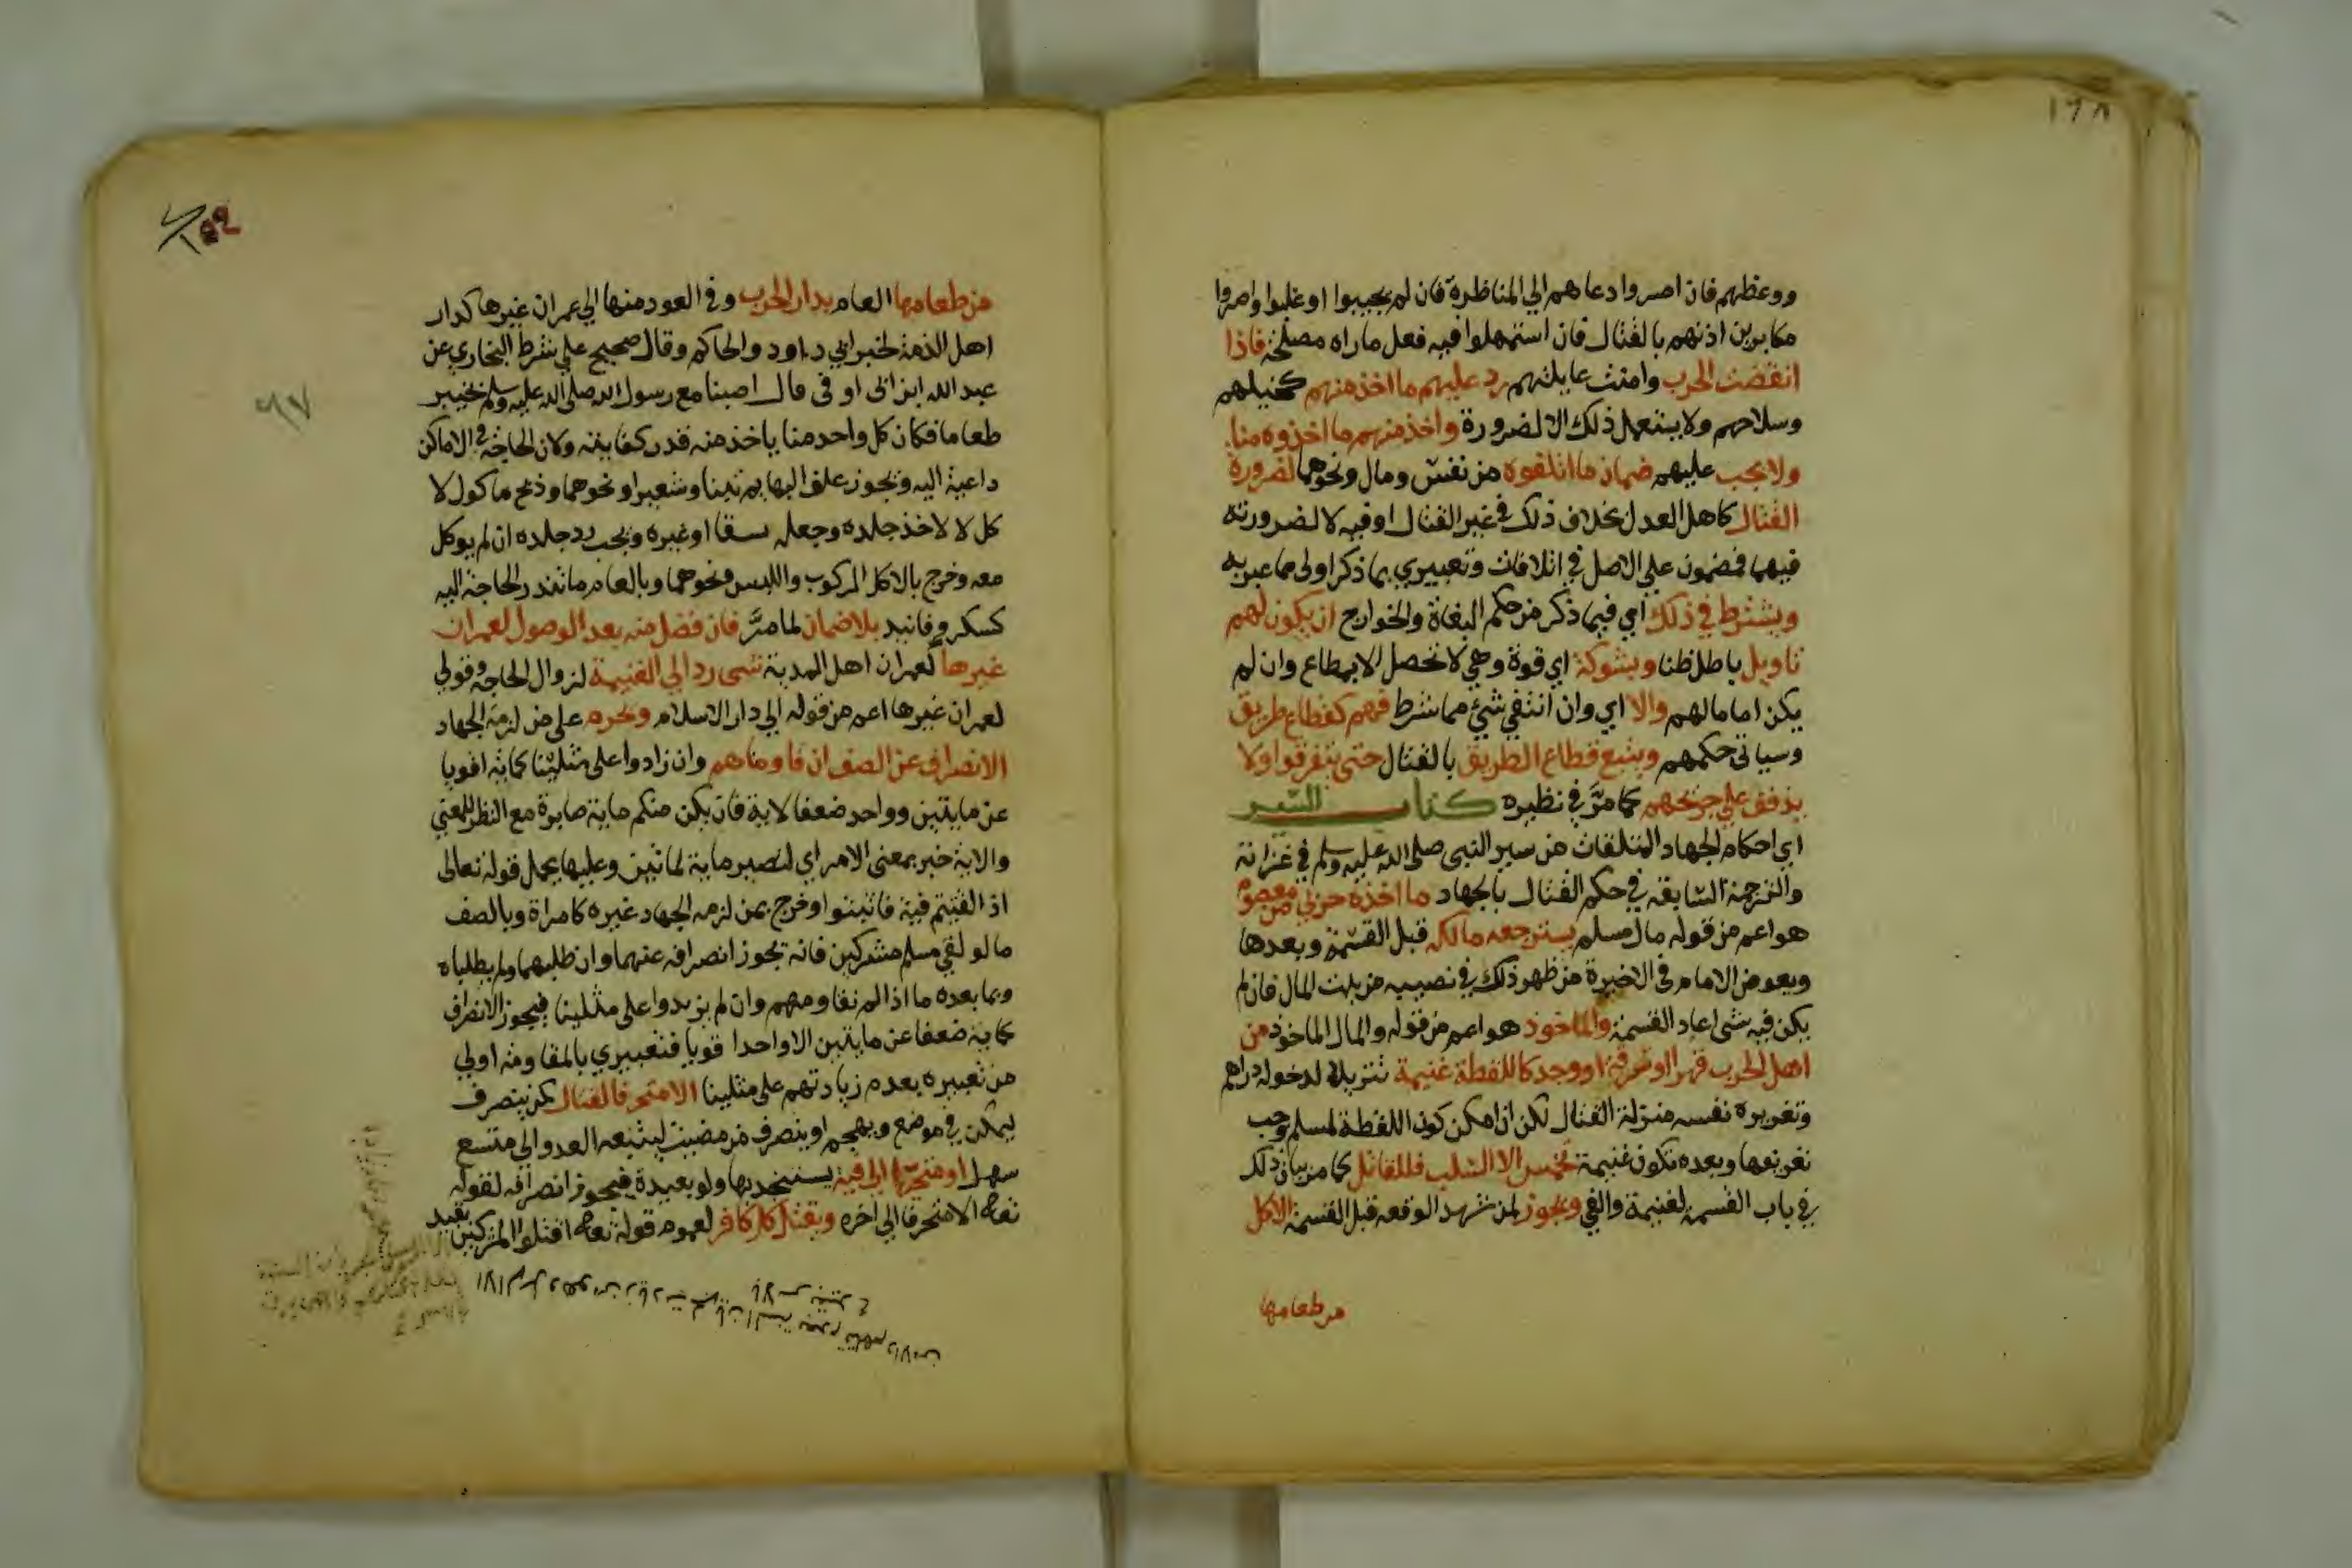 ١٦٨
ووعظهم فان اصروا دعاهم الي المناظرة فان لم يجيبوا او غلبوا واصروا
مكابرين اذنهم بالقتال فان استمهلوا فيه فعل ما راه مصلحة فاذا
انقضت الحرب وامنت غايلتهم رد عليهم ما اخذ منهم كخيلهم
وسلاحهم ولا يستعمل ذلك الا لضرورة واخذ منهم ما اخذوه منا
ولا يجب عليهم ضمان ما اتلفوه من نفس ومال ونحوهما لضرورة
القتال كاهل العدل بخلاف ذلك في غير القتال او فيه لا لضرورته
فيهما فمضمون علي الاصل في اتلافات وتعبيري بما ذكر اولى مما عبر به
ويشترط في ذلك اي فيما ذكر من حكم البغاة والخوارج ان يكون لهم
تاويل باطل ظنا وبشوكة اي قوة وهي لا تحصل الا بمطاع وان لم
يكن اماما لهم والا اي وان انتفي شئ مما شرط فهم كقطاع طريق
وسياتى حكمهم ويتبع قطاع الطريق بالقتال حتى يتفرقوا ولا
يذفف علي جريحهم كما مرّ في نظيره كتاب السّير
اي احكام الجهاد المتلقات من سير النبى صلى الله عليه وسلم في غزاته
والترجمة السّابقة في حكم القتال بالجهاد ما اخذه حربي من معصوم
هو اعم من قوله مال مسلم يسترجعه مالكه قبل القسمة وبعدها
ويعوض الامام فى الاخيرة من ظهر ذلك في نصيبه من بيت المال فان لم
يكن فيه شى اعاد القسمة والماخوذ هو اعم من قوله والمال الماخوذ من
اهل الحرب قهرا او سرقة او وجد كاللقطة غنيمة تنزيلا لدخوله دراهم
وتغريره نفسه منزلة القتال لكن ان امكن كون اللقطة لمسلم وجب
تعريفها وبعده تكون غنيمة تخمس الا السّلب فللقاتل كما مر بيان ذلك
في باب القسمة لغنيمة والفي ويجوز لمن شهد الوقعة قبل القسمة الاكل
من طعامها
من طعامها العام بدار الحرب وفي العود منها الي عمران غيرها كدار
اهل الذمة لخبر ابي داود والحاكم وقال صحيح علي شرط البخاري عن
عبد الله ابن ابى اوفى قال اصبنا مع رسول الله صلى الله عليه وسلم بخيبر
طعاما فكان كل واحد منا ياخذ منه قدر كفايته ولان الحاجة في الاماكن
داعية اليه ويجوز علف البهايم تبنا وشعيرا ونحوهما وذبح ماكول لا
كل لا لاخذ جلده وجعله سقا او غيره ويجب رد جلده ان لم يوكل
معه وخرج بالاكل المركوب واللبس ونحوهما وبالعام ما تندر الحاجة اليه
كسكر وفانيد بلا ضمان لما مرّ فان فضل منه بعد الوصول لعمران
غيرها كعمران اهل المدينة شى رد الي الغنيمة لزوال الحاجة وقولي
لعمران غيرها اعم من قوله الي دار الاسلام وحرم على من لزمه الجهاد
الانصراف عن الصف ان قاومناهم وان زادوا على مثلينا كماية اقويا
عن مايتين وواحد ضعفا لاية فان يكن منكم ماية صابرة مع النظر للمعني
والاية خبر بمعنى الامر اي لتصبر ماية لماتين وعليها يحمل قوله تعالى
اذ القيتم فية فاثبتوا وخرج بمن لزمه الجهاد غيره كامراة وبالصف
ما لو لقي مسلم مشركين فانه يجوز انصرافه عنهما وان طلبهما ولم يطلباه
وبما بعده ما اذا لم نقاومهم وان لم يزيدوا على مثلينا فيجوز الانصراف
كماية ضعفا عن مايتين الا واحدا قويا فتعبيري بالمقاومة اولي
من تعبيره بعدم زيادتهم على مثلينا الا متحرفا لقتال كمن ينصرف
ليمكن في موضع ويهجم او ينصرف من مضيق ليتبعه العدو الى متسع
سهل او متحيزا الى فية يستنجد بها ولو بعيدة فيجوز انصرافه لقوله
تعالى الا متحرفا الي اخره ويقتل كل كافر لعموم قوله تعالى اقتلوا المشركين